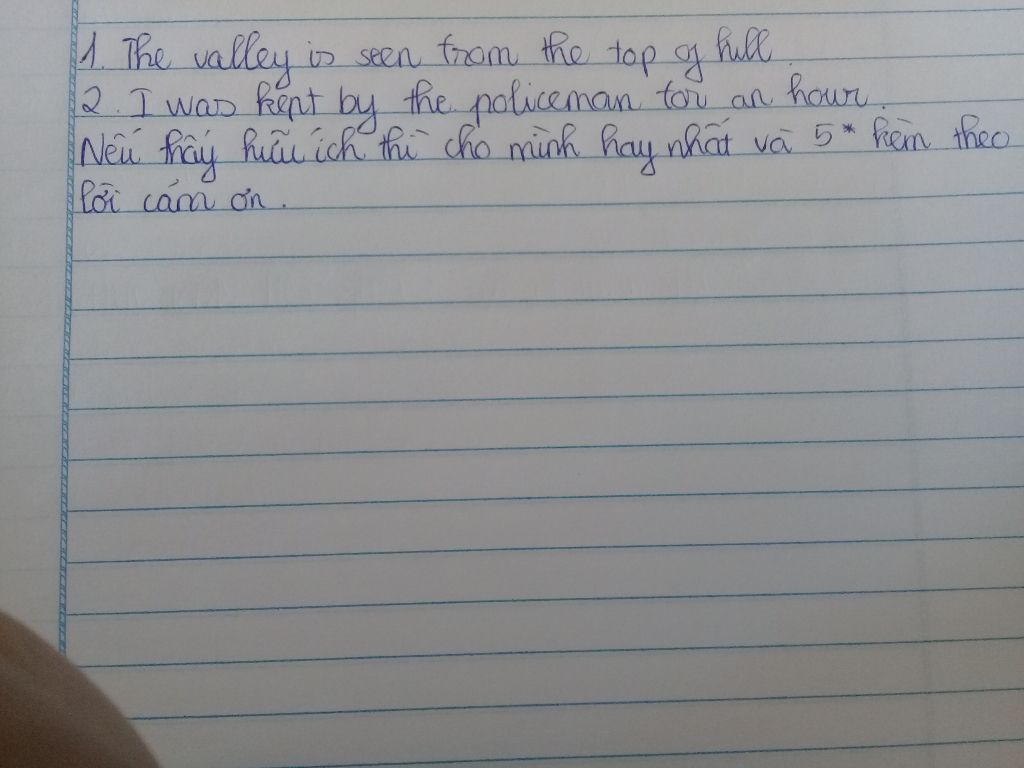 1. The valley is seen from the top of hill.
2. I was kept by the policeman for an hour.
Nếu thấy hữu ích thì cho mình hay nhất và 5* kèm theo
lời cám ơn.